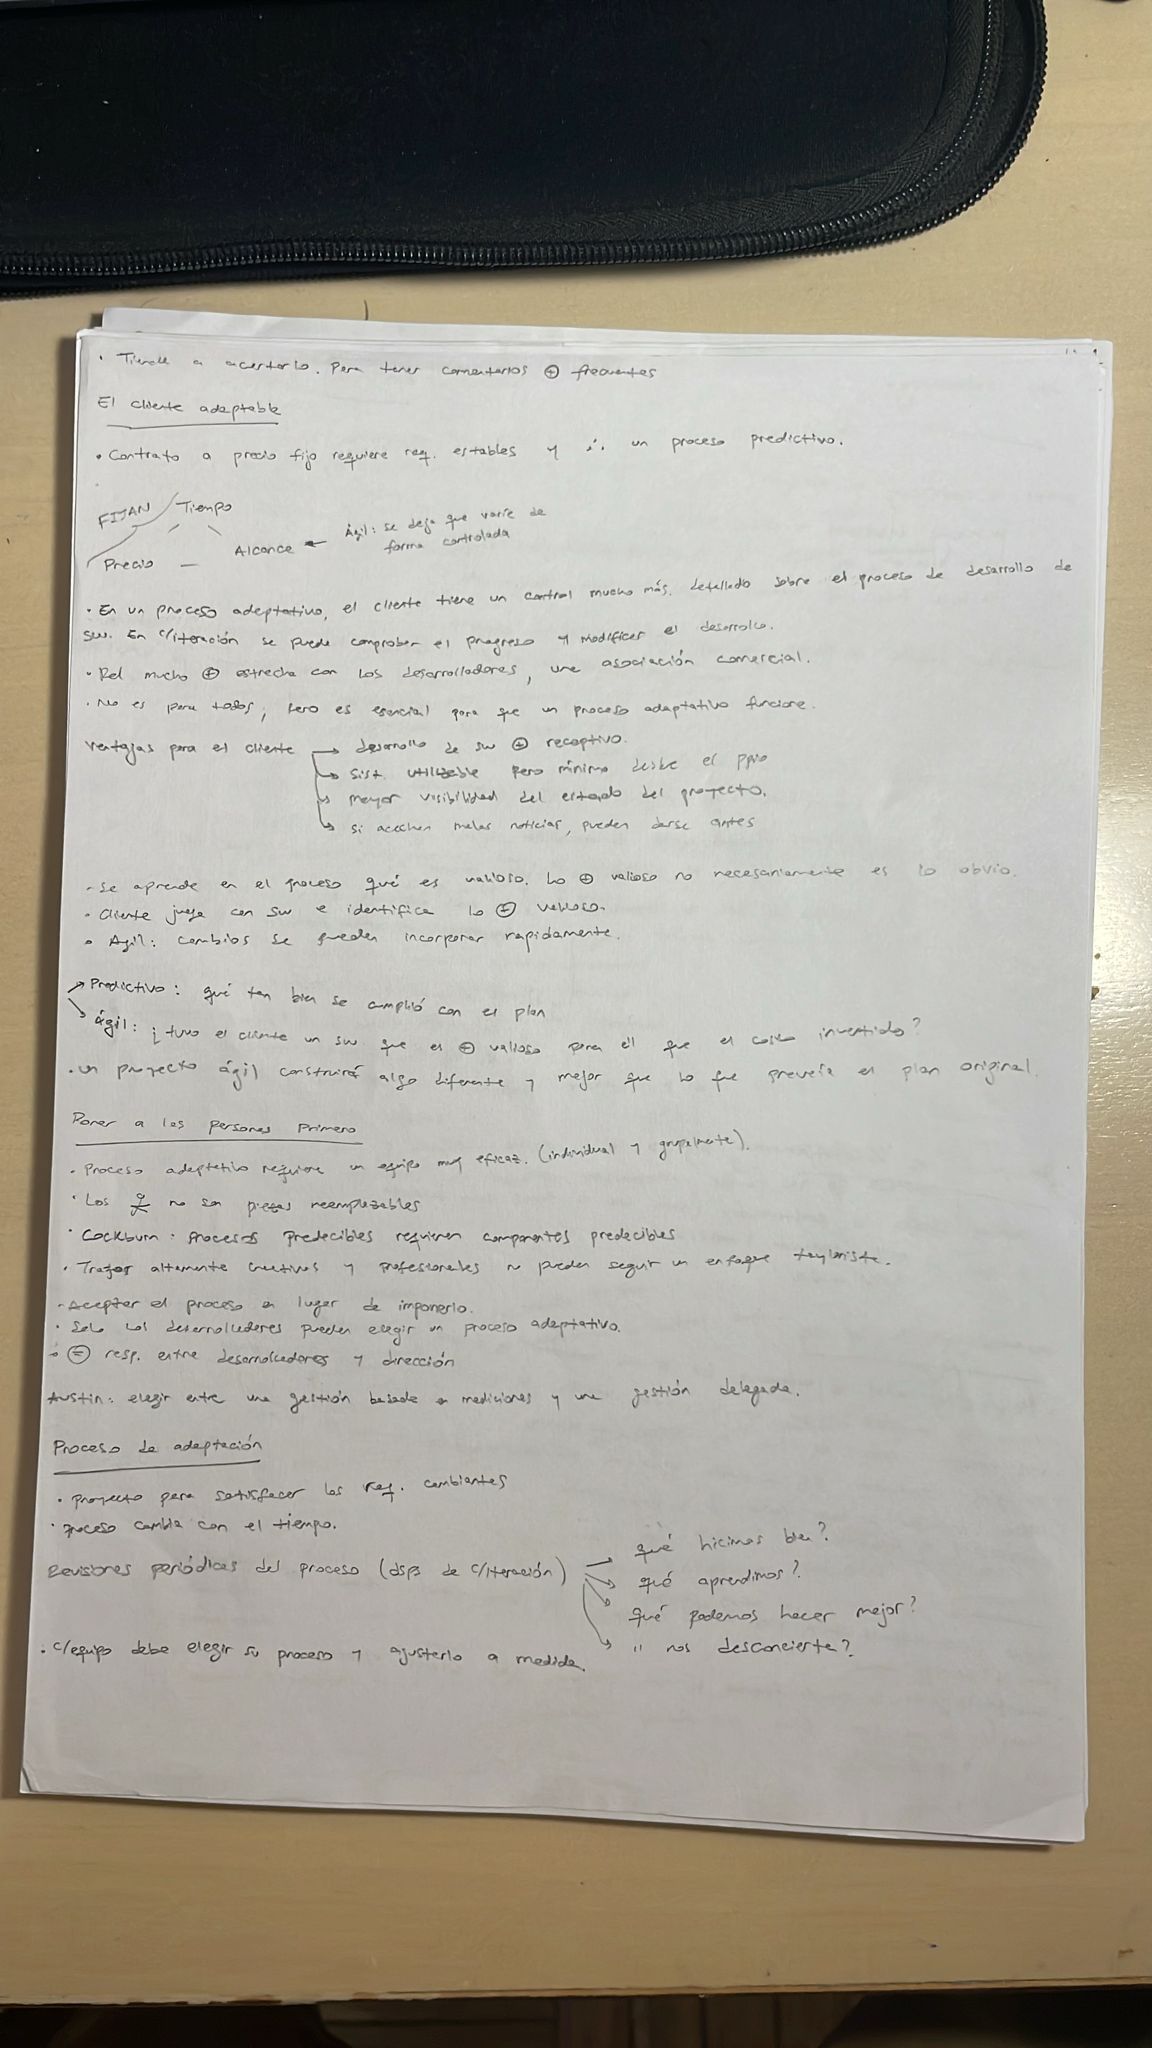 · Tiende a acortarlo. Para tener comentarios ⊕ frecuentes
El cliente adaptable
· Contrato a precio fijo requiere req. estables y ∴ un proceso predictivo.
FIJAN Tiempo
Precio — Alcance ← Ágil: se deja que varíe de
forma controlada
· En un proceso adaptativo, el cliente tiene un control mucho más detallado sobre el proceso de desarrollo de
sw. En c/iteración se puede comprobar el progreso y modificar el desarrollo.
· Rel mucho ⊕ estrecha con los desarrolladores, una asociación comercial.
· No es para todos, pero es esencial para que un proceso adaptativo funcione.
Ventajas para el cliente → desarrollo de sw ⊕ receptivo.
→ Sist. utilizable pero mínimo desde el ppio
→ mayor visibilidad del estado del proyecto.
→ si acechan malas noticias, pueden darse antes
· Se aprende en el proceso qué es valioso. Lo ⊕ valioso no necesariamente es lo obvio.
· Cliente juega con sw e identifica lo ⊕ valioso.
· Agil: cambios se pueden incorporar rapidamente.
→ Predictivo: qué tan bien se cumplió con el plan
→ ágil: ¿tuvo el cliente un sw que es ⊕ valioso para él que el costo invertido?
· un proyecto ágil construirá algo diferente y mejor que lo que preveía el plan original.
Poner a las personas primero
· Proceso adaptativo requiere un equipo muy eficaz. (individual y grupalmente).
· Los 웃 no son piezas reemplazables
· Cockburn: Procesos predecibles requieren componentes predecibles
· Trajos altamente creativos y profesionales no pueden seguir un enfoque taylorista.
· Aceptar el proceso en lugar de imponerlo.
· Solo los desarrolladores pueden elegir un proceso adaptativo.
· ⊜ resp. entre desarrolladores y dirección
Austin: elegir entre una gestión basada en mediciones y una gestión delegada.
Proceso de adaptación
· proyecto para satisfacer los req. cambiantes
· proceso cambia con el tiempo.
Revisiones periódicas del proceso (dsps de c/iteración) → qué hicimos bien?
→ qué aprendimos?
→ qué podemos hacer mejor?
→ " nos desconcierta?
· c/equipo debe elegir su proceso y ajustarlo a medida.